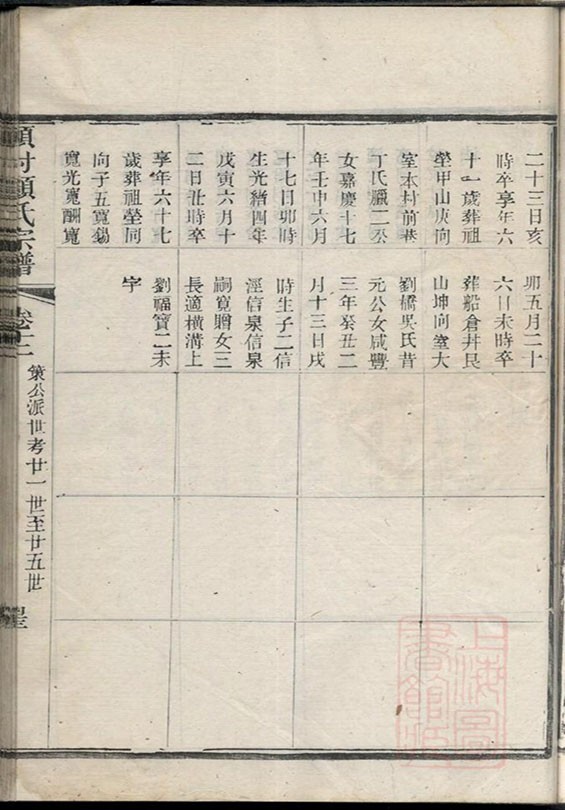 二十三日亥
時卒享年六
十一歲葬祖
塋甲山庚向
室本村前巷
丁氏飆二公
女嘉慶十七
年壬申六月
十七日卯時
生光緒四年
戊寅六月十
二日丑時卒
享年六十七
歲葬祖塋同
向子五寬錫
寬光寬酬寬
卯五月二十
六日未時卒
葬船倉井艮
山坤向室大
劉橋吳氏昔
元公女咸豐
三年癸丑二
月十三日戌
時生子二信
涇信泉信泉
嗣寬贈女三
長適橫溝上
劉福寶二未
字
村顧氏宗譜
卷十二
策公派世考廿一世至廿五世
上海圖書館藏